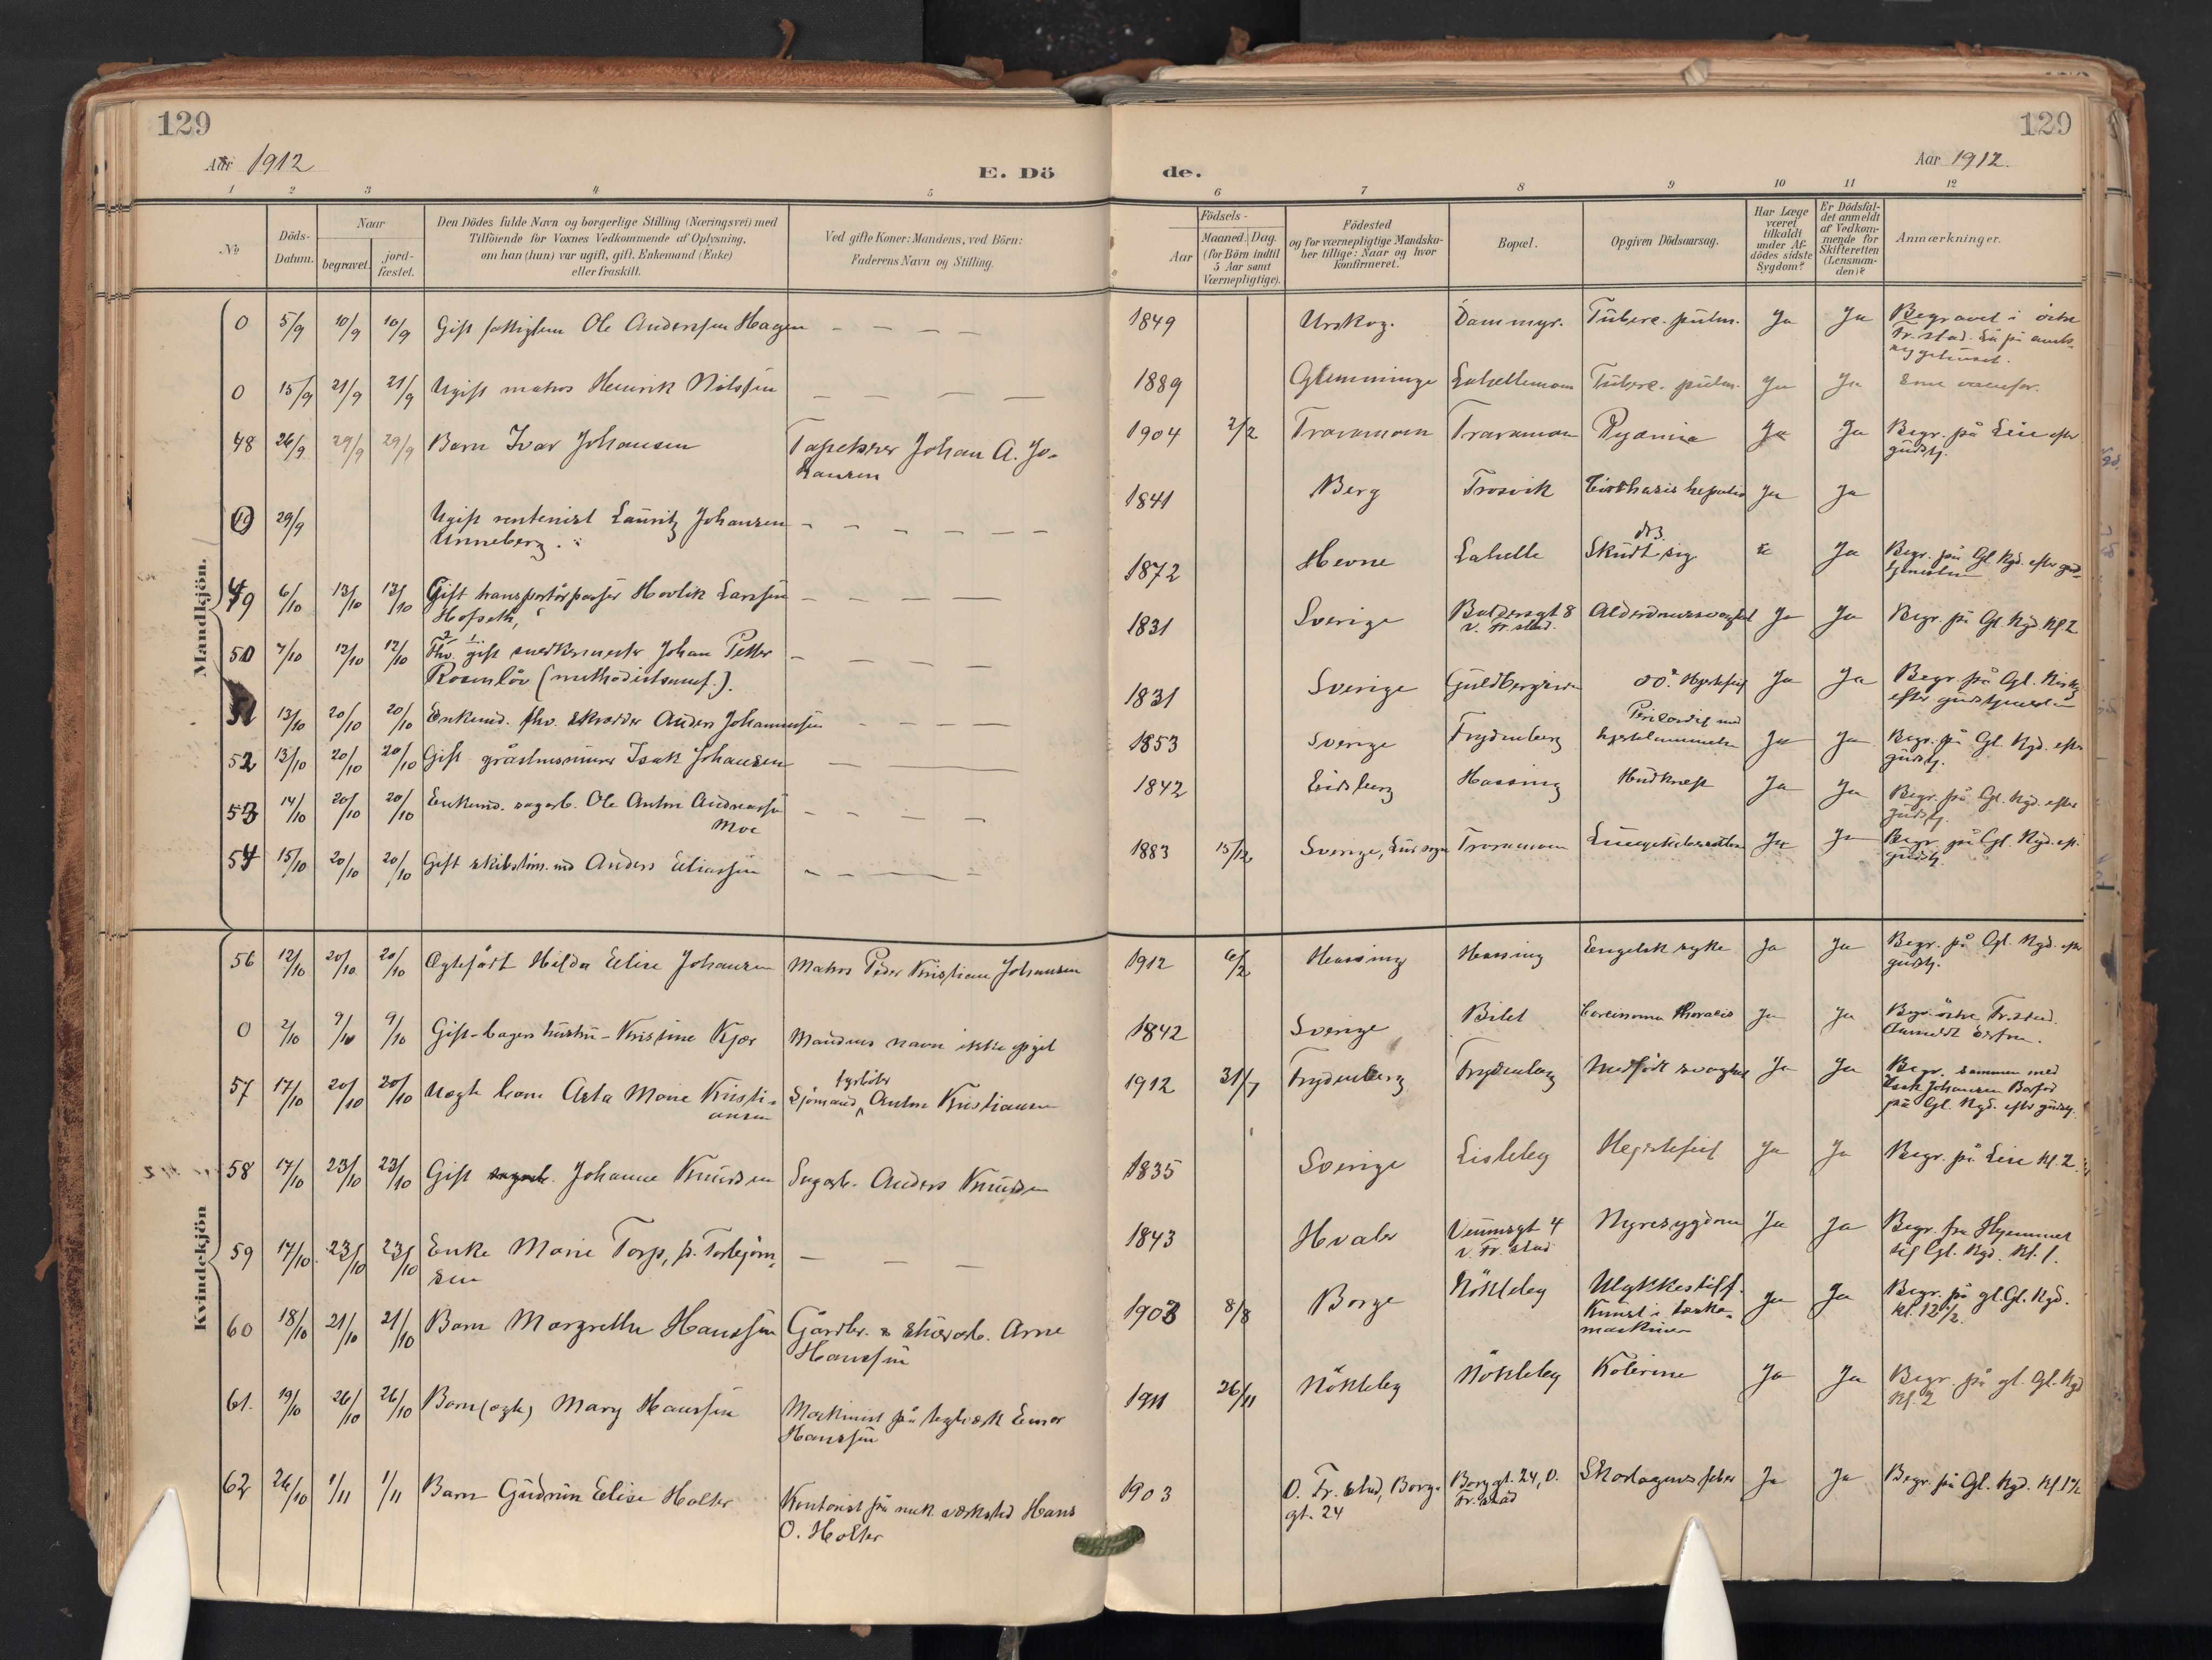 129
Aar 1912
E. Dö
1 2 3 4 5
No
Döds-
Datum.
Naar
begravet.
jord-
fæstet.
Den Dödes fulde Navn og borgerlige Stilling (Næringsvei) med
Tilföiende for Voxnes Vedkommende af Oplysning,
om han (hun) var ugift, gift, Enkemand (Enke)
eller fraskilt.
Ved gifte Koner: Mandens, ved Börn:
Faderens Navn og Stilling.
Mandkjön.
0 5/9 10/9 10/9 Gift Ole Anderssen Hagen
0 15/9 21/9 21/9 Ugift matros Henrik Nilssen
48 26/9 29/9 29/9 Barn Ivar Johansen Tapetserer Johan A. Jo-
hansen
29/9 Ugift rentenist Lauritz Johansen
Unneberg.
49 6/10 13/10 13/10 Gift Larssen
Hofseth,
50 7/10 12/10 12/10 Fhv. gift snedkermester Johan Petter
Rosenlöv (methodistsamf.).
13/10 20/10 20/10 Enkemd. fhv. skrædder Anders Johannessen
52 13/10 20/10 20/10 Gift Isak Johansen
53 14/10 20/10 20/10 Enkemd. sagarb. Ole Anton Andreassen
Moe
54 15/10 20/10 20/10 Gift skibstöm.md Anders Eliassen
Kvindekjön
56 12/10 20/10 20/10 Ægtefödt Hilda Elise Johansen Matros Peder Kristian Johansen
0 2/10 9/10 9/10 Gift - bagers hustru - Kristine Kjær Mandens navn ikke opgit
57 17/10 20/10 20/10 Uægte barn Asta Marie Kristi-
ansen
fyrböter
Sjömand, Anton Kristiansen
58 17/10 23/10 23/10 Gift sagarb. Johanne Knudsen Sagarb. Anders Knudsen
59 17/10 23/10 23/10 Enke Marie Torp, f. Torbjörn-
sen
60 18/10 21/10 21/10 Barn Margrethe Hanssen Gårdbr. & Arne
Hanssen
61. 19/10 26/10 26/10 Barn (ægte) Mary Hanssen Maskinist på teglværk Einar
Hanssen
62 26/10 1/11 1/11 Barn Gudrun Elise Holter Kontorist på mek. verksted Hans
O. Holter
129
Aar 1912.
de.
6 7 8 9 10 11 12
Födsels-
Aar
Maaned. Dag.
(for Börn indtil
5 Aar samt
Værnepligtige).
Födested
og for værnepligtige Mandska-
ber tillige: Naar og hvor
konfirmeret.
Bopæl.
Opgiven Dödsaarsag.
Har Læge
været
tilkaldt
under Af-
dödes sidste
Sygdom?
Er Dödsfal-
det anmeldt
af Vedkom-
mende for
Skifteretten
(Lensman-
den)?
Anmærkninger.
1849 Urskog. Dammyr. Tuberc. pulm. Ja Ja Begravet i östre
Fr.stad. Lå på amts-
sygehuset.
1889 Glemminge Lahellemoen Tuberc. pulm. Ja Ja Som ovenfor.
1904 2/2 Traramoen Traramoen Pyæmie Ja Ja Begr. på Leie efter
gudstj.
1841 Berg Trosvik Cirrhosis hepatis Ja Ja
1872 Hevne Lahelle Skudt sig Ja Begr. på Gl. Kgd. efter gud-
tjenesten
1831 Sverige Baldersgt 8
v. Fr.stad. Alderdomssvaghed Ja Ja Begr. på Gl. Kgd. Kl 2
1831 Sverige Guldbergsiden Hjertefeil Ja Ja Begr. på Gl. Kirkeg.
efter gudstjenesten
1853 Sverige Frydenberg Pericardit med
hjertelammelse Ja Ja Begr. på Gl. Kgd. efter
gudstj.
1842 Eidsberg Hassing Hudkræft Ja Ja Begr. på Gl. Kgd. efter
gudstj.
1883 15/12 Sverige, Traramoen Lungetuberculose Ja Ja Begr. på Gl. Kgd. eft.
gudstj.
1912 6/2 Hassing Hassing Engelsk syke Ja Ja Begr. på Gl. Kgd. eft
gudstj.
1842 Sverige Bilet Carcinoma thoracis Ja Ja Begr. östre Fr.stad.
Anmeldt
1912 31/7 Frydenberg Frydenberg Medfödt svaghet Ja Ja Begr. sammen med
Isak Johansen
på Gl. Kgd. efter gudstj.
1835 Sverige Lisleby Hjertefeil Ja Ja Begr. på Leie Kl. 2.
1843 Hvaler Veumsgt 4
v. Fr.stad Nyresygdom Ja Ja Begr. fra Hjemmet
til Gl. Kgd. Kl. 1.
1903 8/8 Borge Nökleby Ulykkestilf.
Knust i tærske-
maskinen Ja Ja Begr. på gl. Gl. Kgd.
kl. 12 1/2.
1911 26/11 Nökleby Nökleby Kolerine Ja Ja Begr. på gl. Gl. Kgd
Kl. 2
1903 O. Fr.stad, Borg-
gt. 24 Borggt. 24, O.
Fr.stad Skarlagensfeber Ja Ja Begr. på Gl. Kgd. Kl. 1 1/2